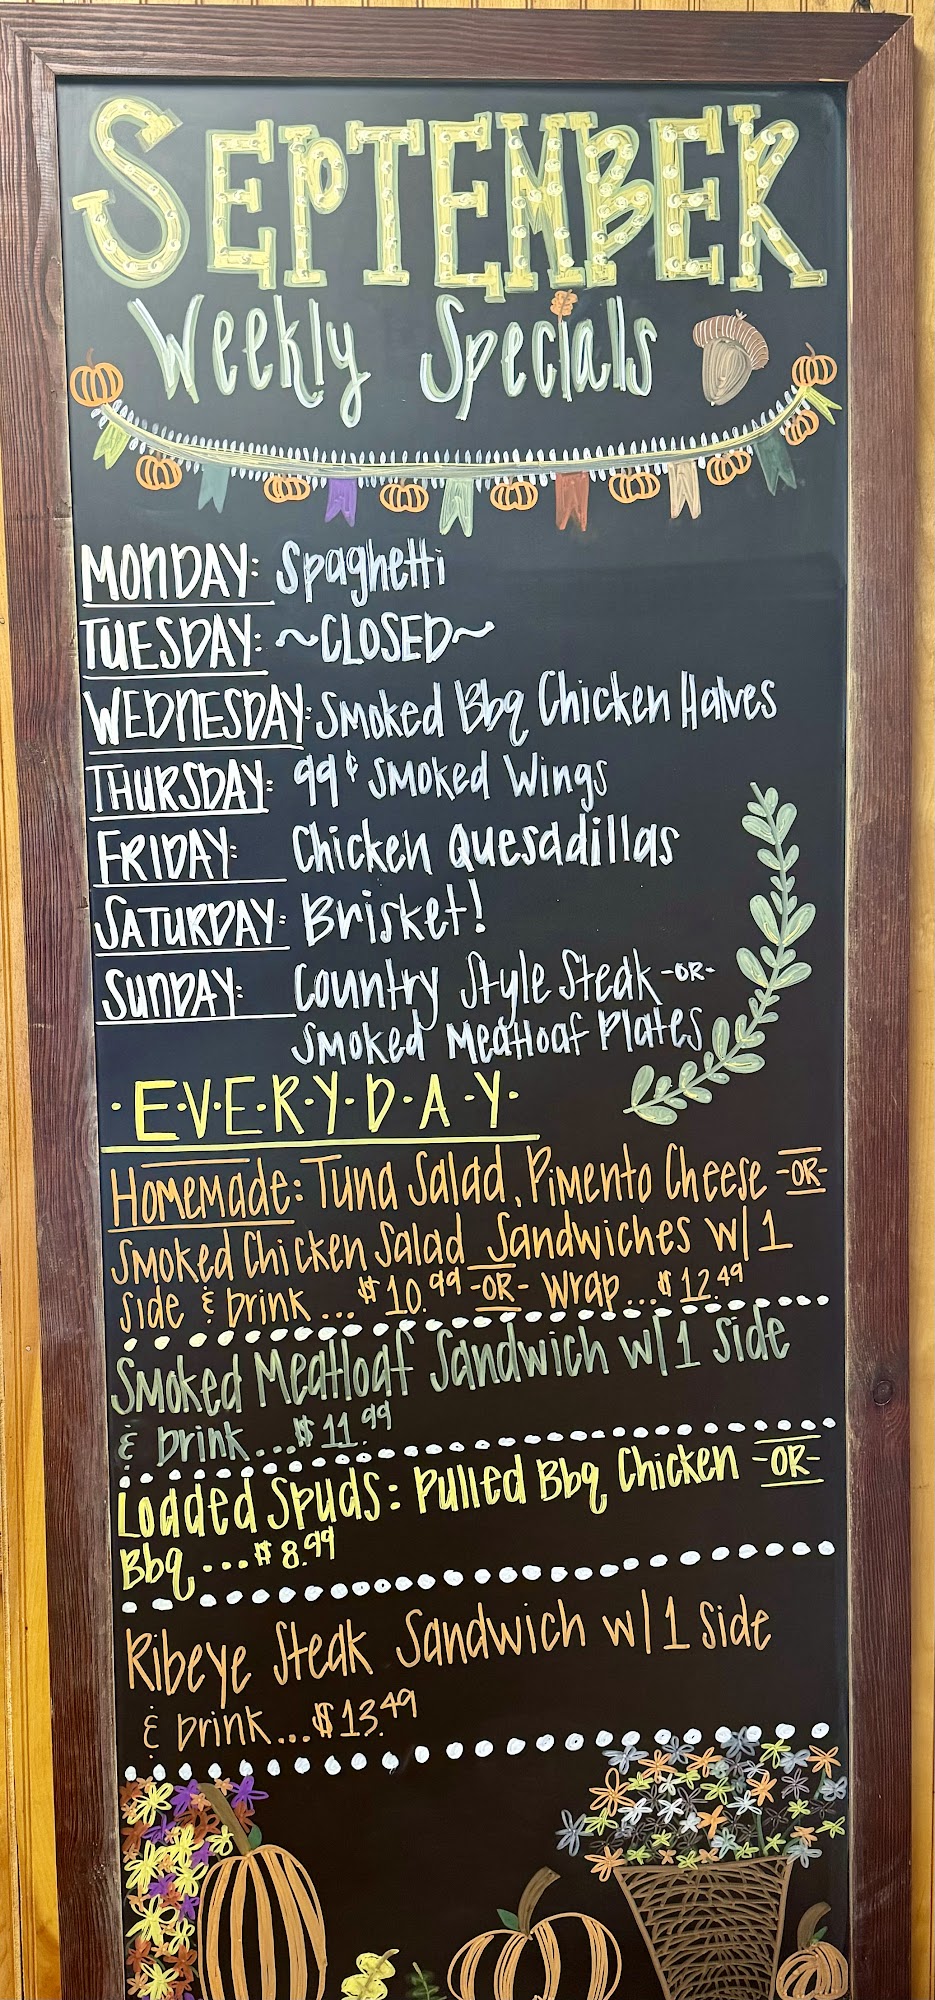 SEPTEMBER
Weekly Specials
MONDAY: Spaghetti
TUESDAY: ~CLOSED~
WEDNESDAY: Smoked Bbq Chicken Halves
THURSDAY: 99¢ Smoked Wings
FRIDAY: Chicken Quesadillas
SATURDAY: Brisket!
SUNDAY: Country Style Steak -OR-
Smoked Meatloaf Plates
·E·V·E·R·Y·D·A·Y·
Homemade: Tuna Salad, Pimento Cheese -OR-
Smoked Chicken Salad Sandwiches w/1
Side & Drink ... $10.99 -OR- Wrap ... $12.49
Smoked Meatloaf Sandwich w/1 Side
& Drink ... $11.99
Loaded Spuds: Pulled Bbq Chicken -OR-
Bbq ... $8.99
Ribeye Steak Sandwich w/1 Side
& Drink ... $13.49